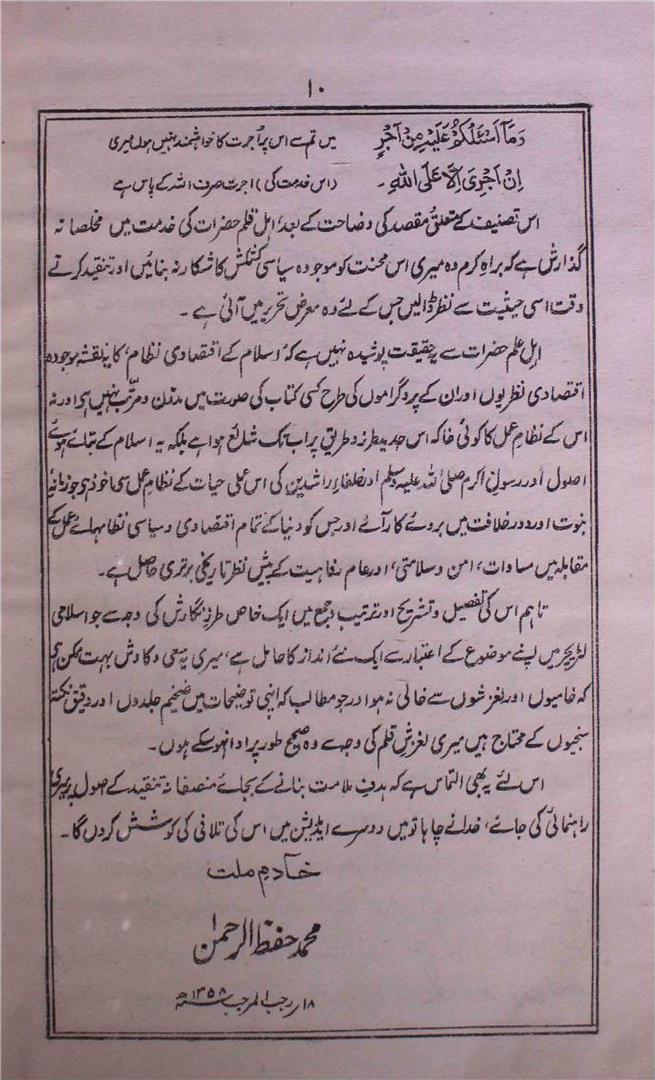 ۱۰
وَمَآ اَسْئَلُكُمْ عَلَيْهِ مِنْ اَجْرٍ میں تم سے اس پر اُجرت کا خواہشمند نہیں ہوں میری
اِنْ اَجْرِیَ اِلَّا عَلَی اللّٰہِ۔ (اس خدمت کی) اجرت صرف اللہ کے پاس ہے
اس تصنیف کے متعلق مقصد کی وضاحت کے بعد، اہل قلم حضرات کی خدمت میں مخلصانہ
گذارش ہے کہ براہ کرم وہ میری اس محنت کو موجودہ سیاسی کشمکش کا شکار نہ بنائیں اور تنقید کرتے
وقت اسی حیثیت سے نظر ڈالیں جس کے لئے وہ معرض تحریر میں آئی ہے۔
اہل علم حضرات سے یہ حقیقت پوشیدہ نہیں ہے کہ "اسلام کے اقتصادی نظام" کا یہ نقشہ موجودہ
اقتصادی نظریوں اور ان کے پروگراموں کی طرح کسی کتاب کی صورت میں مدون و مرتب نہیں ہے اور نہ
اس کے نظامِ عمل کا کوئی خاکہ اس جدید طرز و طریق پر اب تک شائع ہوا ہے بلکہ یہ اسلام کے بتائے ہوئے
اصول اور رسولِ اکرم صلی اللہ علیہ وسلم اور خلفاءِ راشدین کی اس عملی حیات کے نظامِ عمل سے ماخوذ ہے جو زمانۂ
نبوت اور دورِ خلافت میں بروئے کار آئے اور جس کو دنیا کے تمام اقتصادی و سیاسی نظامہائے عمل کے
مقابلہ میں مساوات، امن و سلامتی، اور عام رفاہیت کے پیش نظر تاریخی برتری حاصل ہے۔
تاہم اس کی تفصیل و تشریح اور ترتیب و جمع میں ایک خاص طرزِ نگارش کی وجہ سے جو اسلامی
لٹریچر میں اپنے موضوع کے اعتبار سے ایک نئے انداز کا حامل ہے، میری یہ سعی و کاوش بہت ممکن ہے
کہ خامیوں اور لغزشوں سے خالی نہ ہو اور جو مطالب کہ اپنی توضیحات میں ضخیم جلدوں اور دقیق نکتہ
سنجیوں کے محتاج ہیں میری لغزشِ قلم کی وجہ سے وہ صحیح طور پر ادا نہ ہو سکے ہوں۔
اس لئے یہ بھی التماس ہے کہ ہدفِ ملامت بنانے کے بجائے منصفانہ تنقید کے اصول پر میری
راہنمائی کی جائے، خدا نے چاہا تو میں دوسرے ایڈیشن میں اس کی تلافی کی کوشش کروں گا۔
خادمِ ملت
محمد حفظ الرحمٰن
۱۸ رجب المرجب ۱۳۵۸ھ